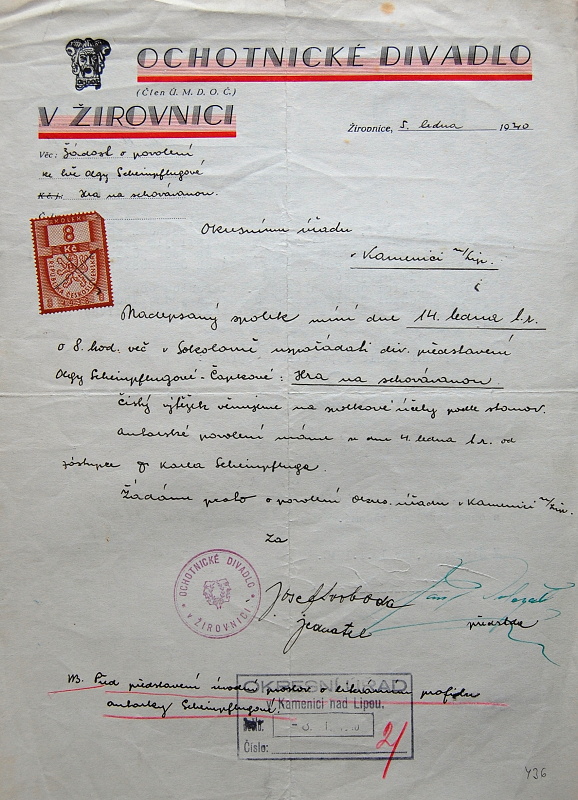 OCHOTNICKÉ DIVADLO
(Člen Ú. M. D. O. Č.)
V ŽIROVNICI
Žirovnice, 5. ledna 1940
Věc: Žádost o povolení
ke hře Olgy Scheinpflugové
Hra na schovávanou.
KOLEK
8
Kč
Okresnímu úřadu
v Kamenici n/Lip.
Nadepsaný spolek míní dne 14. ledna t.r.
o 8. hod. več v Sokolovně uspořádati div. představení
Olgy Scheinpflugové-Čapkové: Hra na schovávanou
čistý výtěžek věnujeme na spolkové účely podle stanov.
Autorské povolení máme ze dne 4. ledna t.r. od
zástupce Karla Scheinpfluga.
Žádáme proto o povolení Okres. úřadu v Kamenici n/Lip.
Za
OCHOTNICKÉ DIVADLO
V ŽIROVNICI
Josef Svoboda
jednatel
předseda
NB. Před představení úvodní proslov o literárním profilu
autorky Scheinpflugové.
OKRESNÍ ÚŘAD
v Kamenici nad Lipou,
Číslo:
2/
436